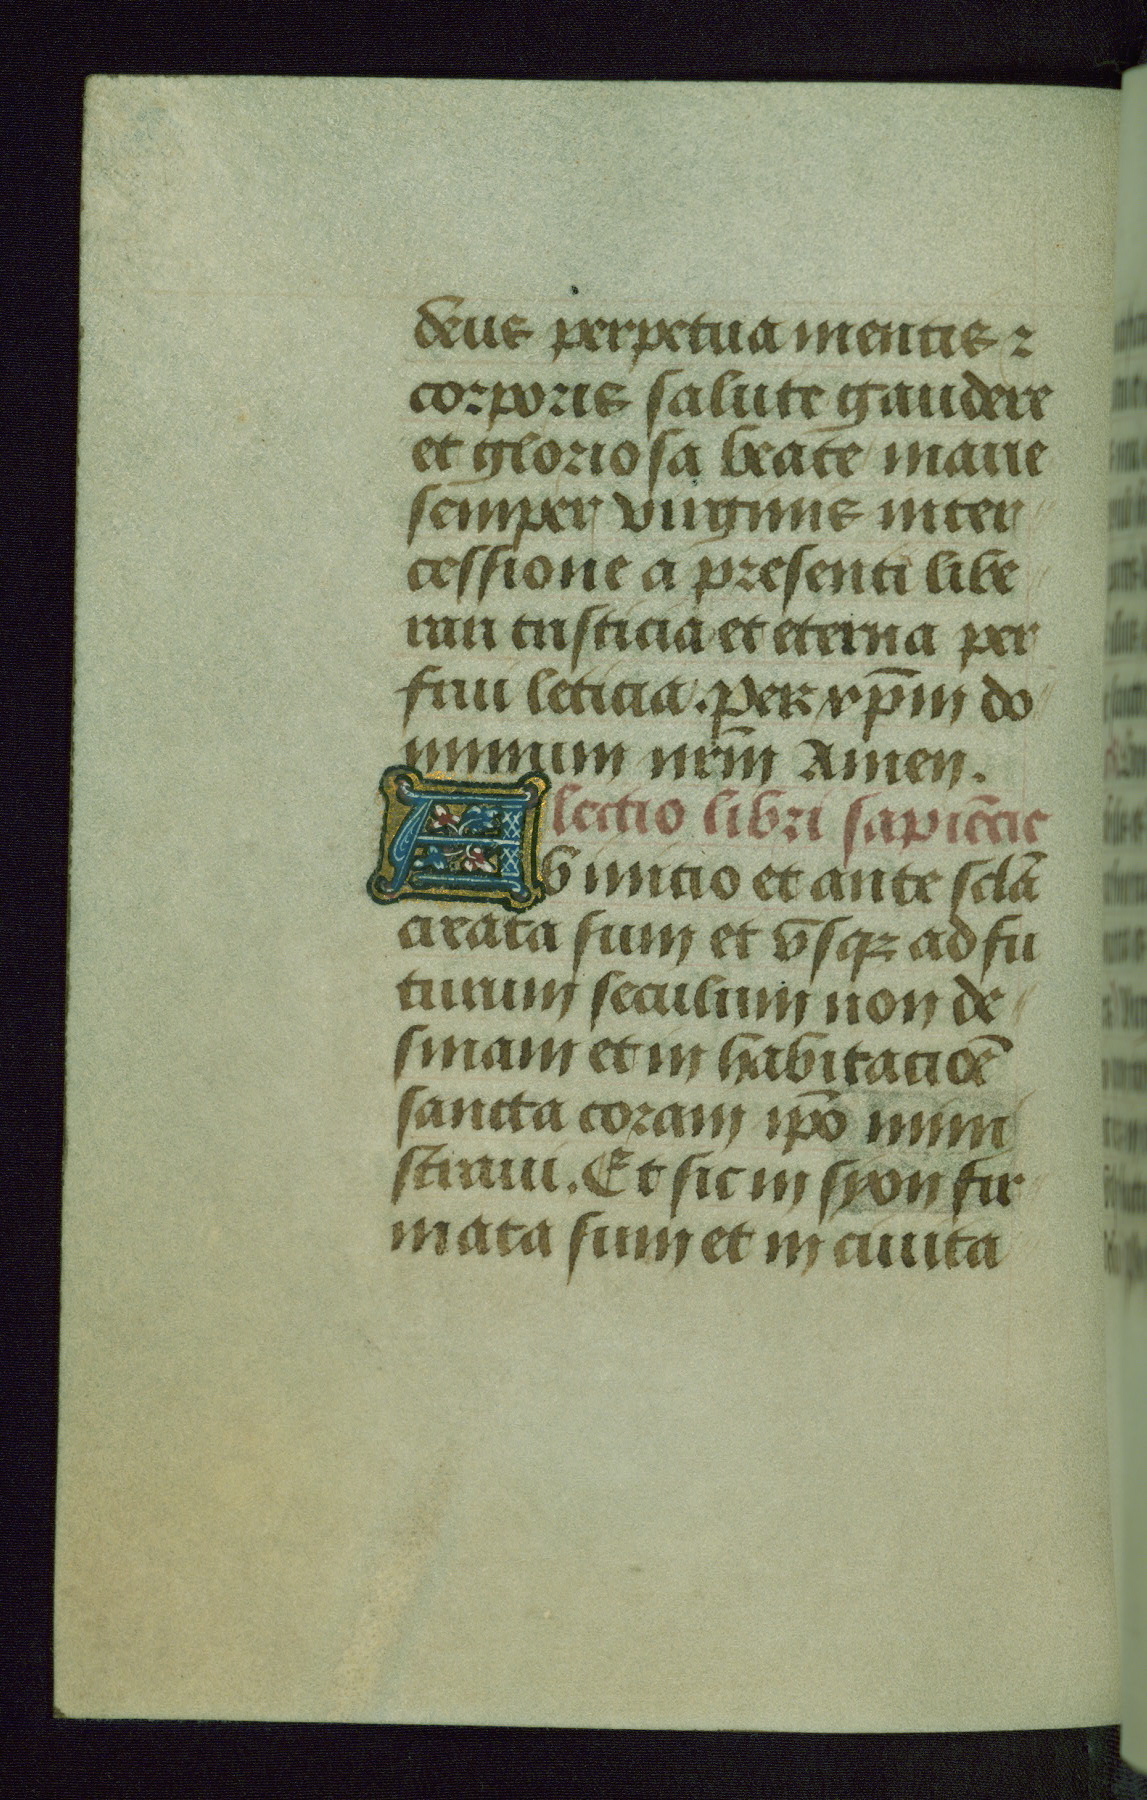 deus perpetua mentis ⁊
corporis salute gaudere
et gloriosa beate marie
semper virginis inter
cessione a presenti libe
rari tristicia et eterna per
frui leticia. Per xp̄m do
minum nr̄m Amen.
lectio libri sapiēcie
Ab inicio et ante sclā
creata sum et vsqꝫ ad fu
turum seculum non de
sinam et in habitaciōe
sancta coram ipō mini
straui. Et sic in syon fir
mata sum et in ciuita